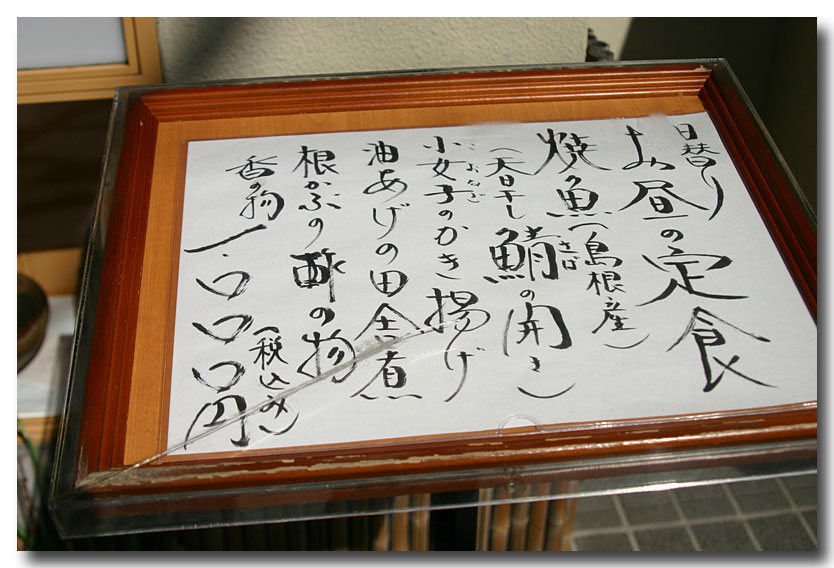 日替り
お昼の定食
焼魚(島根産)
(天日干し鯖の開き)
さば
小女子のかき揚げ
こおなご
油あげの田舎煮
根かぶの酢の物
香の物
一、〇〇〇円
(税込み)